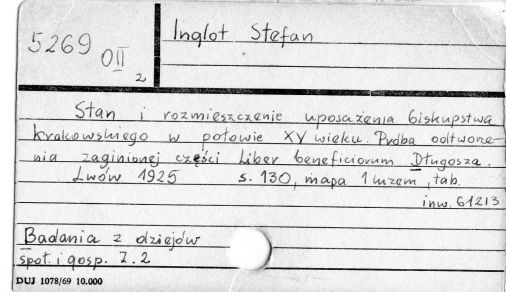 5269
OII
2
Inglot Stefan
Stan i rozmieszczenie uposażenia biskupstwa
krakowskiego w połowie XV wieku. Próba odtworze-
nia zaginionej części Liber beneficiorum Długosza.
Lwów 1925 s. 130, mapa 1 luzem, tab.
inw. 61213
Badania z dziejów
społ. i gosp. Z. 2
DUJ 1078/69 10.000